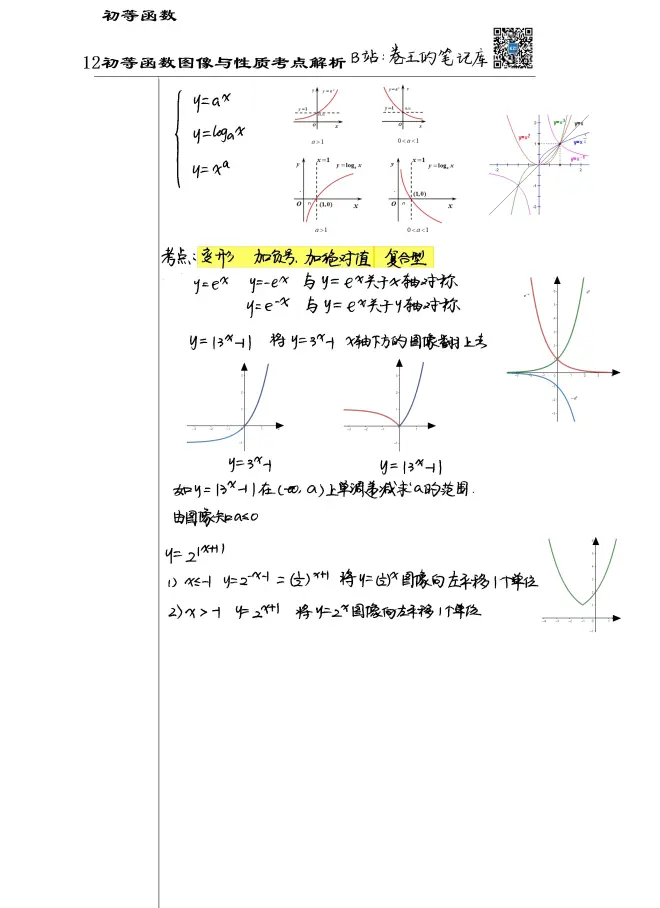 初等函数
12初等函数图像与性质考点解析 B站:卷王的笔记库
y=aˣ
y=logₐx
y=xᵃ
y=1
y=aˣ
a>1
y=aˣ
y=1
0<a<1
x=1
y=logₐx
(1,0)
a>1
x=1
y=logₐx
(1,0)
0<a<1
考点:变形 加负号、加绝对值 复合型
y=eˣ y=-eˣ 与y=eˣ关于x轴对称
y=e⁻ˣ 与y=eˣ关于y轴对称
y=|3ˣ-1| 将y=3ˣ-1 x轴下方的图像翻上去
y=3ˣ-1
y=|3ˣ-1|
如y=|3ˣ-1|在(-∞,a)上单调递减求a的范围.
由图像知a≤0
y=2^|x+1|
1) x≤-1 y=2^-x-1=(1/2)^x+1 将y=(1/2)ˣ图像向左平移1个单位
2) x>-1 y=2^x+1 将y=2ˣ图像向左平移1个单位